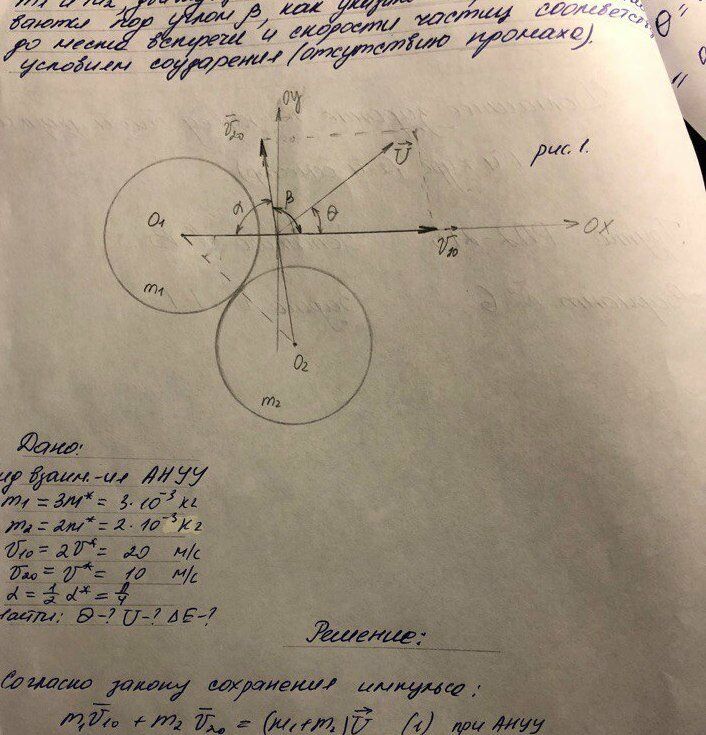 ваются под углом β, как указано
до места встречи и скорости частиц соответств
условием соударения (отсутствию промаха).
OY
v̄₂₀
U⃗
рис. 1.
α
β
θ
O₁
OX
v̄₁₀
m₁
O₂
m₂
Дано:
взаим.-ия АНУУ
m₁ = 3m* = 3·10⁻³ кг
m₂ = 2m* = 2·10⁻³ кг
v₁₀ = 2v* = 20 м/с
v₂₀ = v* = 10 м/с
α = ½ α* = π/4
θ-? U-? ΔE-?
Решение:
Согласно закону сохранения импульса:
m₁v̄₁₀ + m₂v̄₂₀ = (m₁+m₂)U⃗ (1) при АНУУ